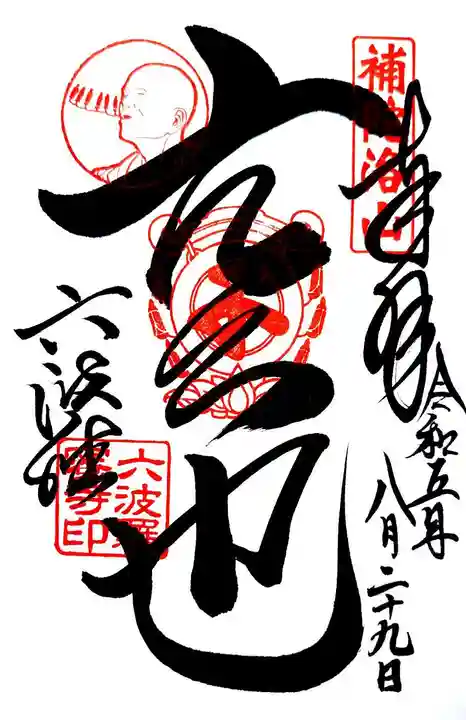 奉拝
補陀洛山
令和五年
八月二十九日
空也
六波羅
六波羅蜜寺印